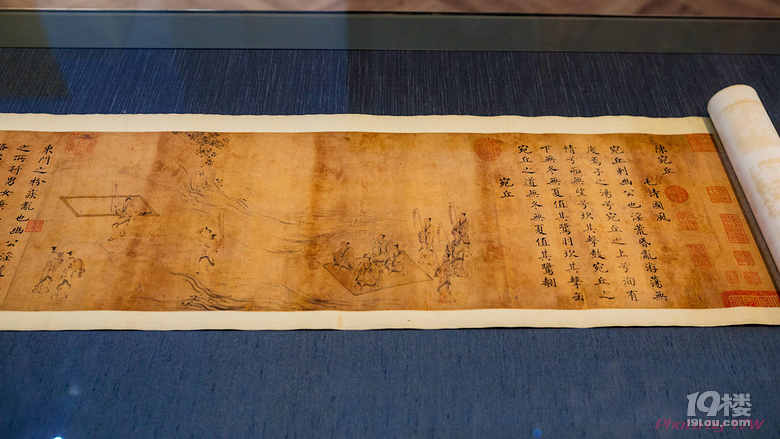 陳宛丘
毛詩國風
宛丘刺幽公也淫荒昏亂游蕩無
度焉子之湯兮宛丘之上兮洵有
情兮而無望兮坎其擊鼓宛丘之
下無冬無夏值其鷺羽坎其擊缶
宛丘之道無冬無夏值其鷺翿
宛丘
東門之枌疾亂也幽公淫荒
之所行男女棄
19楼
19lou.com